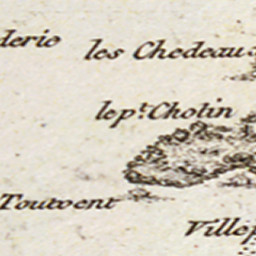 derie
les Chedeau
le pt. Cholin
Toutvent
Ville